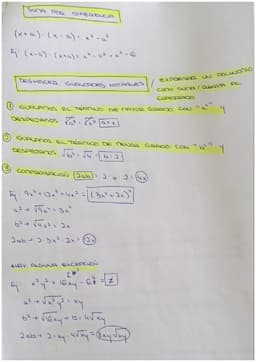 SUMA POR DIFERENCIA
(x+a)·(x-a) = x²-a²
Ej: (x-4)·(x+4) =
DESHACER IGUALDADES NOTABLES / EXPRESAR UN POLINOMIO
COMO SUMA / RESTA AL
CUADRADO
① IGUALAMOS EL TÉRMINO DE MAYOR GRADO CON "a²" Y
DESPEJAMOS
② IGUALAMOS EL TÉRMINO DE MENOR GRADO CON "b²" Y
DESPEJAMOS
③ COMPROBACIÓN 2ab =
Ej: 9x⁴+12x³+4x² = (3x²+2x)²
a² → √9x⁴ = 3x²
b² → √4x² = 2x
2ab → 2·3x²·2x =
HAY ALGUNA EXCEPCIÓN
Ej: x²y² + 16xy
a² → √x²y² = xy
b² → √16xy → b = 4√xy
2ab → 2·xy·4√xy = 8xy√xy